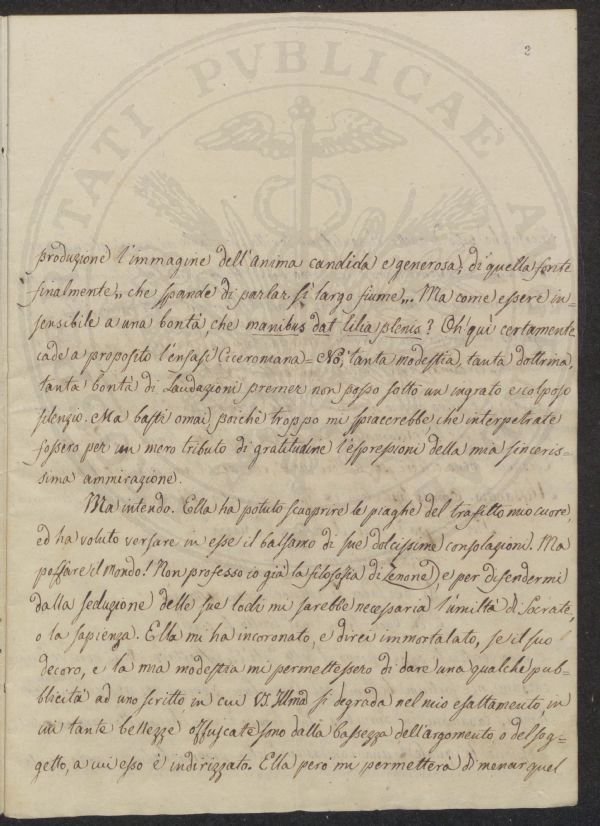 2
produzione l'immagine dell'anima candida e generosa, di quella fonte
finalmente „ che spande di parlar sì largo fiume „. Ma come essere in=
sensibile a una bontà, che manibus dat lilia plenis? Oh qui certamente
cade a proposito l'enfasi Ciceroniana = No, tanta modestia, tanta dottrina,
tanta bontà di Laudazioni premer non posso sotto un ingrato e colposo
silenzio. Ma basti omai, poichè troppo mi spiacerebbe che interpetrate
fossero per un mero tributo di gratitudine l'espressioni della mia sinceris=
sima ammirazione.
Ma intendo. Ella ha potuto scuoprire le piaghe del trafitto mio cuore,
ed ha voluto versare in esse il balsamo di sue dolcissime consolazioni. Ma
poffare il mondo! Non professo io già la filosofia di Zenone, e per difendermi
dalla seduzione delle sue lodi mi sarebbe necessaria l'umiltà di Socrate,
o la sapienza. Ella mi ha incoronato, e direi immortalato, se il suo
decoro, e la mia modestia mi permettessero di dare una qualche pub=
blicità ad uno scritto in cui VS. Illma si degrada nel mio esaltamento, in
cui tante bellezze offuscate sono dalla bassezza dell'argomento o del sog=
getto, a cui esso è indirizzato. Ella però mi permetterà di menar quel
TATI PVBLICAE